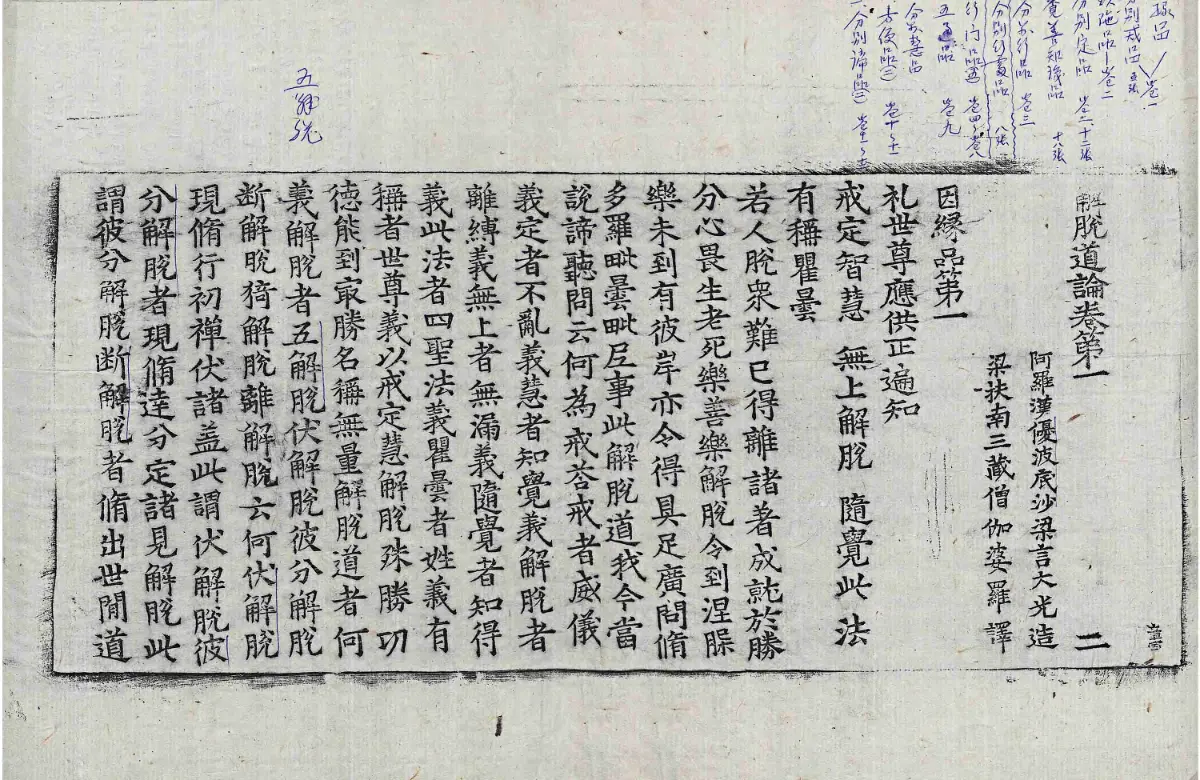 解脫道論卷第一
二
阿羅漢優波底沙梁言大光造
梁扶南三藏僧伽婆羅譯
因緣品第一
礼世尊應供正遍知
戒定智慧 無上解脫 隨覺此法
有稱瞿曇
若人脫衆難已得離諸著成就於勝
分心畏生老死樂善樂解脫令到涅槃
樂未到有彼岸亦令得具足廣問脩
多羅毗曇毗尼事此解脫道我今當
說諦聽問云何為戒荅戒者威儀
義定者不亂義慧者知覺義解脫者
離縛義無上者無漏義隨覺者知得
義此法者四聖法義瞿曇者姓義有
稱者世尊義以戒定慧解脫殊勝功
德能到㝡勝名稱無量解脫道者何
義解脫者五解脫伏解脫彼分解脫
断解脫猗解脫離解脫云何伏解脫
現脩行初禪伏諸盖此謂伏解脫彼
分解脫者現脩達分定諸見解脫此
謂彼分解脫断解脫者脩出世閒道
分別戒品
卷一
施品 卷二
分別定品 卷二 十二張
覓善知識品 十八張
分別行品 卷三
分別行處品 八張
行門品 卷四 卷八
五通品 卷九
分別慧品
方便品 卷十
分別諦品
五解脫